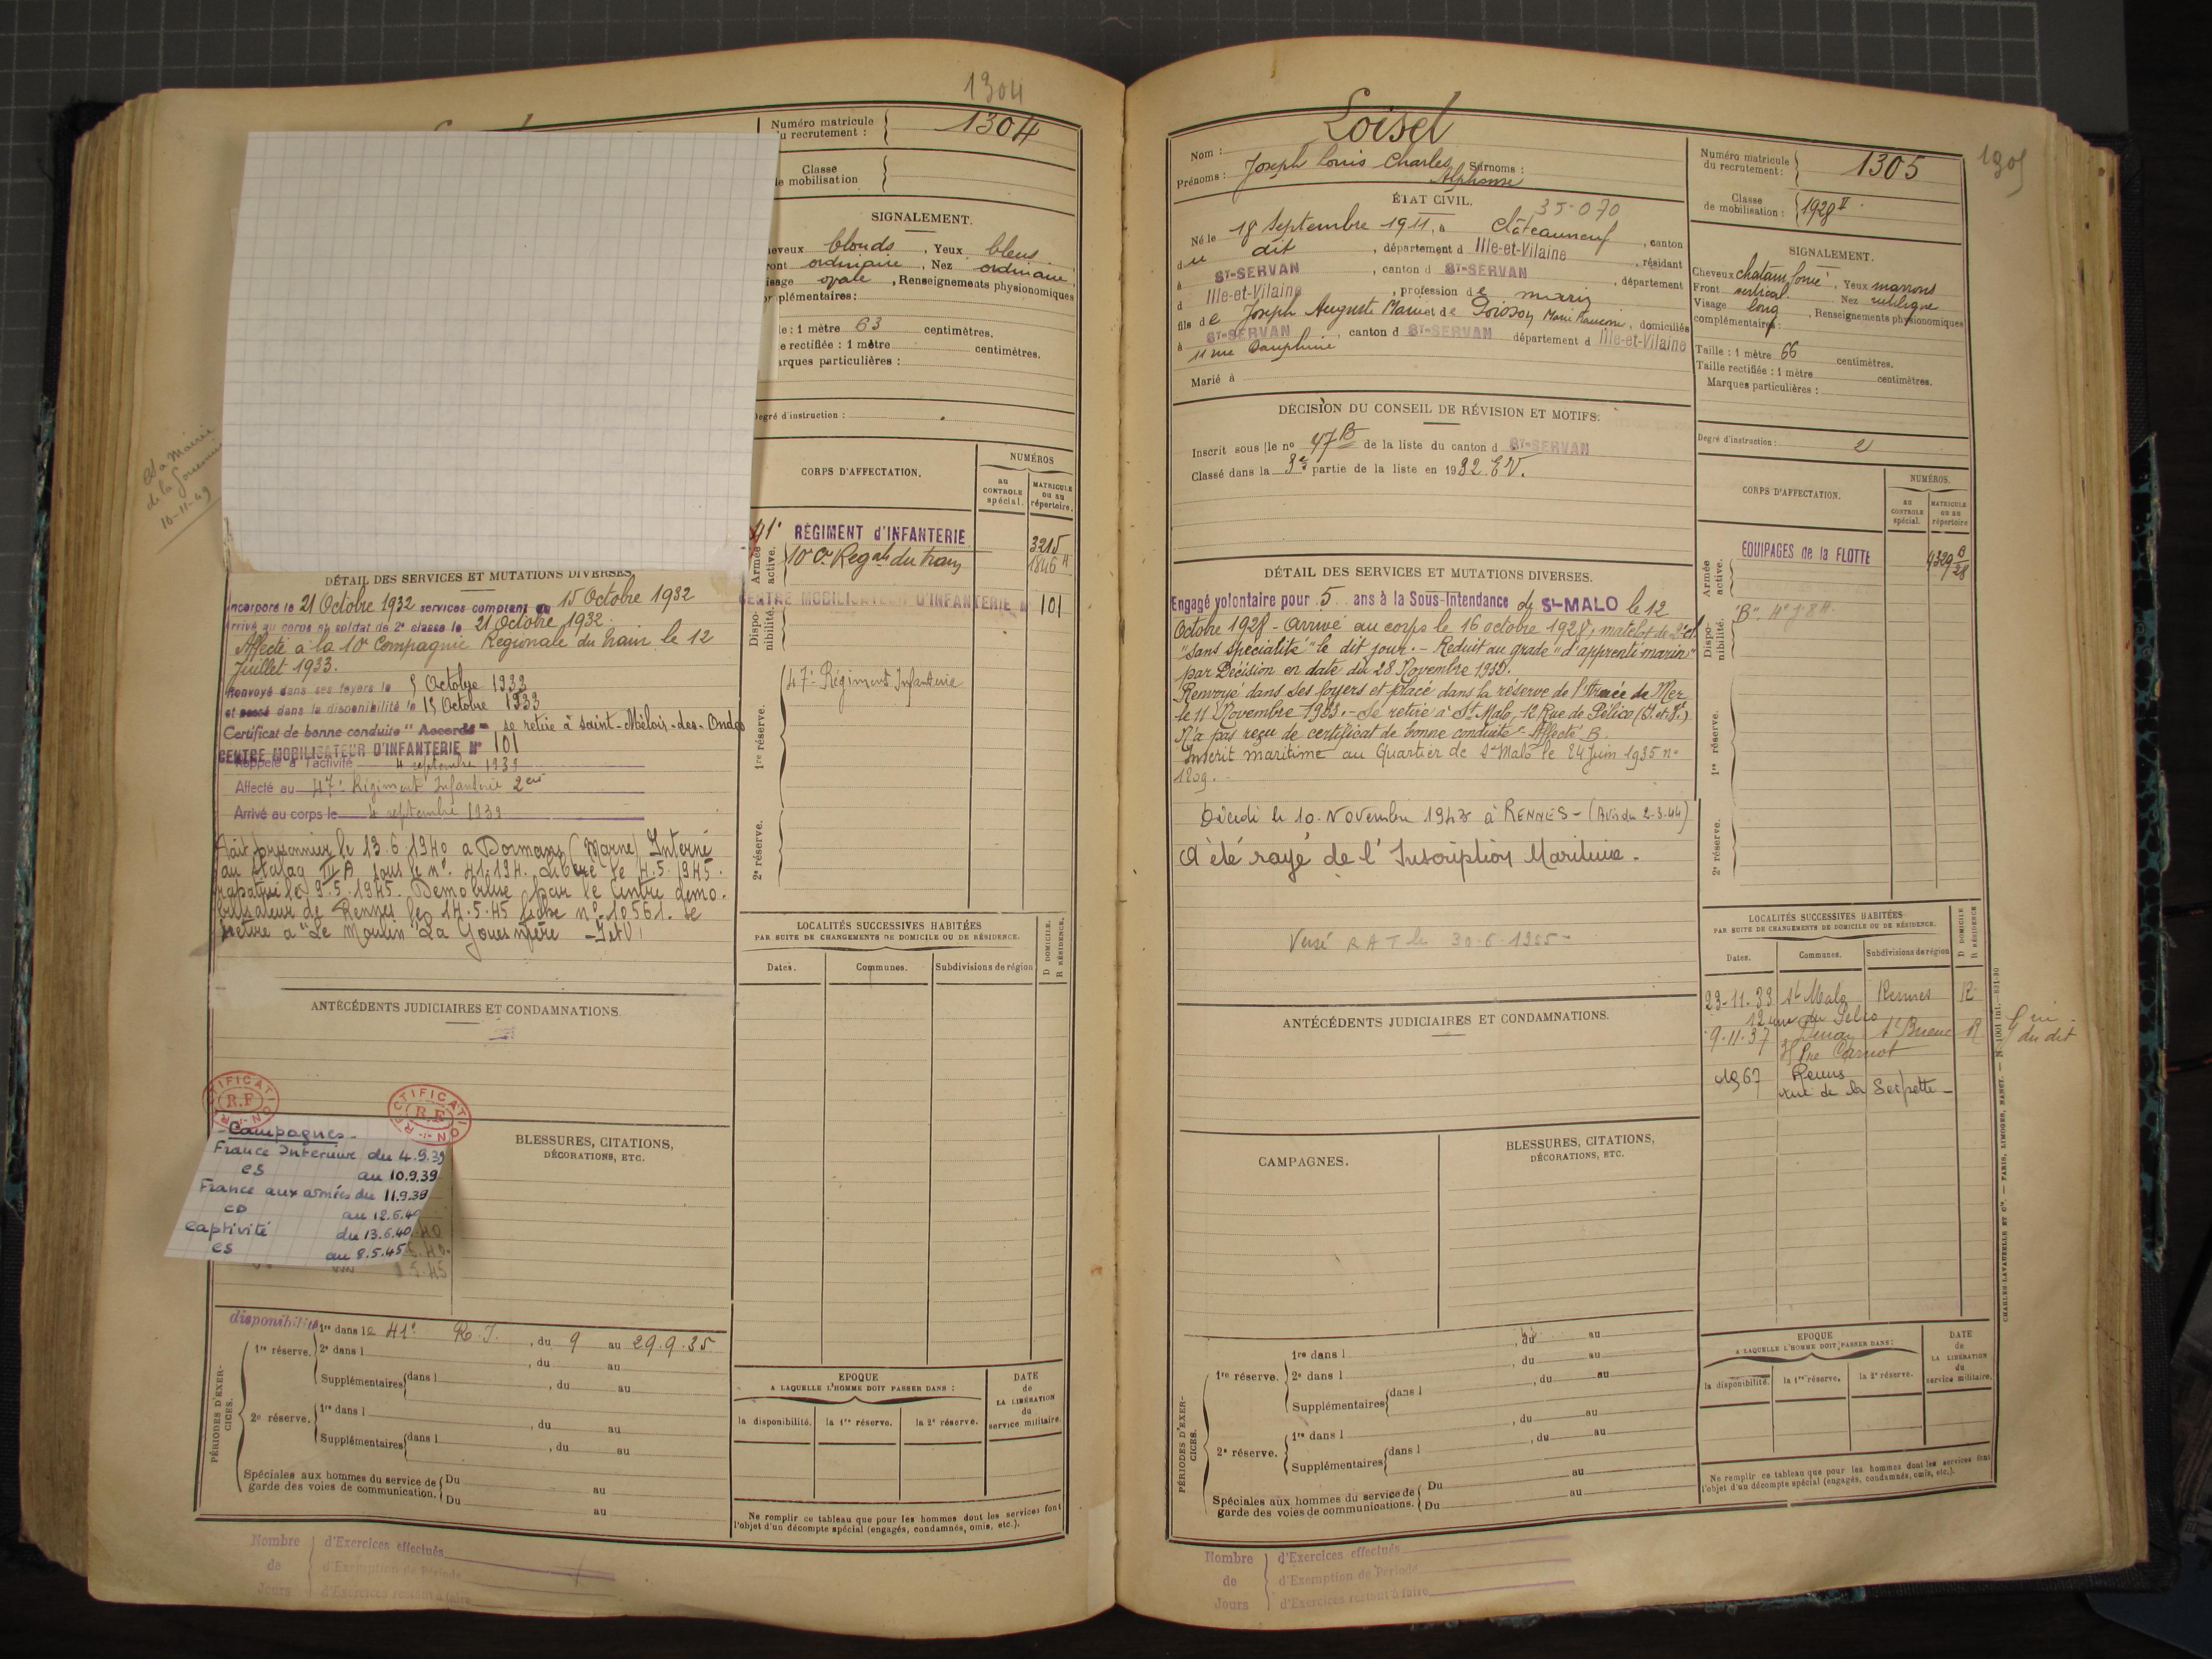 1304
Numéro matricule
du recrutement :
1304
Classe
de mobilisation
SIGNALEMENT.
Cheveux blonds, Yeux bleus
Front ordinaire, Nez ordinaire
Visage ovale, Renseignements physionomiques
complémentaires :
Taille : 1 mètre 63 centimètres.
Taille rectifiée : 1 mètre centimètres.
Marques particulières :
Degré d'instruction :
CORPS D'AFFECTATION.
NUMÉROS
au CONTROLE spécial.
MATRICULE ou au répertoire.
Armée active.
41e RÉGIMENT d'INFANTERIE 3215
10e Cie Regale du train 1846
Dispo-nibilité.
CENTRE MOBILISATEUR D'INFANTERIE N° 101
1re réserve.
47e Régiment Infanterie
2e réserve.
à Mairie
de la Gouesnière
10-11-49
DÉTAIL DES SERVICES ET MUTATIONS DIVERSES.
Incorporé le 21 Octobre 1932 services comptant du 15 Octobre 1932
Arrivé au corps et soldat de 2e classe le 21 Octobre 1932.
Affecté à la 10e Compagnie Régionale du train le 12
Juillet 1933.
Renvoyé dans ses foyers le 5 Octobre 1933
et passé dans la disponibilité le 15 Octobre 1933
Certificat de bonne conduite "Accordé" se retire à Saint-Méloir-des-Ondes
CENTRE MOBILISATEUR D'INFANTERIE N° 101
Rappelé à l'activité 4 septembre 1939
Affecté au 47e Régiment Infanterie
Arrivé au corps le 4 septembre 1939
Fait prisonnier le 13.6.1940 a Dormans (Marne) Interné
au Stalag III A sous le n° 41.194. Libéré le 4.5.1945.
rapatrié le 9.5.1945. Démobilisé par le Centre démo-
bilisateur de Rennes le 14.5.45 fiche n° 10561. se
retire a "Le Moulin" La Gouesnière - I et V
ANTÉCÉDENTS JUDICIAIRES ET CONDAMNATIONS.
RECTIFICATION R.F
RECTIFICATION R.F
Campagnes
France Intérieure du 4.9.39
CS au 10.9.39
France aux armées du 11.9.39
CD au 12.6.40
Captivité du 13.6.40
CS au 8.5.45
BLESSURES, CITATIONS,
DÉCORATIONS, ETC.
LOCALITÉS SUCCESSIVES HABITÉES
PAR SUITE DE CHANGEMENTS DE DOMICILE OU DE RÉSIDENCE.
D DOMICILE.
R RÉSIDENCE.
Dates. Communes. Subdivisions de région
disponibilité
PÉRIODES D'EXER-CICES.
1re réserve.
1re dans le 41e R.I., du 9 au 29.9.35
2e dans l , du au
Supplémentaires dans l , du au
2e réserve.
1re dans l , du au
Supplémentaires dans l , du au
Spéciales aux hommes du service de
garde des voies de communication.
Du au
Du au
EPOQUE
A LAQUELLE L'HOMME DOIT PASSER DANS :
DATE
de
LA LIBÉRATION
du
service militaire.
la disponibilité. la 1re réserve. la 2e réserve.
Ne remplir ce tableau que pour les hommes dont les services font
l'objet d'un décompte spécial (engagés, condamnés, omis, etc.).
Nombre de Jours
d'Exercices effectués
d'Exemption de Période
d'Exercices restant à faire
1305
Nom : Loisel
Prénoms : Joseph Louis Charles Surnoms :
Alphonse
Numéro matricule
du recrutement :
1305
Classe
de mobilisation :
1928 II
ÉTAT CIVIL.
35-070
Né le 18 Septembre 1911, à Châteauneuf, canton
du dit, département d Ille-et-Vilaine, résidant
à St-SERVAN, canton d St-SERVAN, département
d Ille-et-Vilaine, profession de marin
fils de Joseph Auguste Marie et de Poisson Marie, domiciliés
à St-SERVAN, canton d St-SERVAN département d Ille-et-Vilaine
11 rue Dauphine
Marié à
SIGNALEMENT.
Cheveux chatain foncé, Yeux marrons
Front vertical Nez rectiligne
Visage long, Renseignements physionomiques
complémentaires :
Taille : 1 mètre 66 centimètres.
Taille rectifiée : 1 mètre centimètres.
Marques particulières :
Degré d'instruction : 2
DÉCISION DU CONSEIL DE RÉVISION ET MOTIFS.
Inscrit sous le n° 47B de la liste du canton d St-SERVAN
Classé dans la 3e partie de la liste en 1932 EV.
CORPS D'AFFECTATION.
NUMÉROS.
au CONTROLE spécial.
MATRICULE ou au répertoire
Armée active.
ÉQUIPAGES de la FLOTTE 4329 B/28
Dispo-nibilité.
1re réserve.
2e réserve.
DÉTAIL DES SERVICES ET MUTATIONS DIVERSES.
Engagé volontaire pour 5 ans à la Sous-Intendance de St-MALO le 12
Octobre 1928 - Arrivé au corps le 16 octobre 1928, matelot de 2e cl.
"sans spécialité" le dit jour. - Réduit au grade "d'apprenti marin"
par Décision en date du 28 Novembre 1932.
Renvoyé dans ses foyers et placé dans la réserve de l'Armée de Mer
le 11 Novembre 1933. - Se retire à St Malo, 12 Rue de Pélico (I. et V.)
N'a pas reçu de certificat de bonne conduite - Affecté B.
Inscrit maritime au Quartier de St Malo le 24 Juin 1935 n°
1209.
Décédé le 10. Novembre 1943 à RENNES - (Avis du 2-3-44)
A été rayé de l'Inscription Maritime.
Versé R A T le 30-6-1955 -
ANTÉCÉDENTS JUDICIAIRES ET CONDAMNATIONS.
CAMPAGNES.
BLESSURES, CITATIONS,
DÉCORATIONS, ETC.
LOCALITÉS SUCCESSIVES HABITÉES
PAR SUITE DE CHANGEMENTS DE DOMICILE OU DE RÉSIDENCE.
D DOMICILE
R RÉSIDENCE
Dates. Communes. Subdivisions de région
23-11-33 St Malo Rennes R
12 rue du Pélico
9-11-37 Dinan St Brieuc R
Rue Carnot
du dit
Rennes
rue de la Serpette -
PÉRIODES D'EXER-CICES.
1re réserve.
1re dans l , du au
2e dans l , du au
Supplémentaires dans l , du au
2e réserve.
1re dans l , du au
Supplémentaires dans l , du au
Spéciales aux hommes du service de
garde des voies de communications.
Du au
Du au
EPOQUE
A LAQUELLE L'HOMME DOIT PASSER DANS :
DATE
de
LA LIBÉRATION
du
service militaire.
la disponibilité. la 1re réserve. la 2e réserve.
Ne remplir ce tableau que pour les hommes dont les services font
l'objet d'un décompte spécial (engagés, condamnés, omis, etc.).
CHARLES-LAVAUZELLE ET Cie. — PARIS, LIMOGES, NANCY. — N. 1001 int.—831-30
Nombre de Jours
d'Exercices effectués
d'Exemption de Période
d'Exercices restant à faire